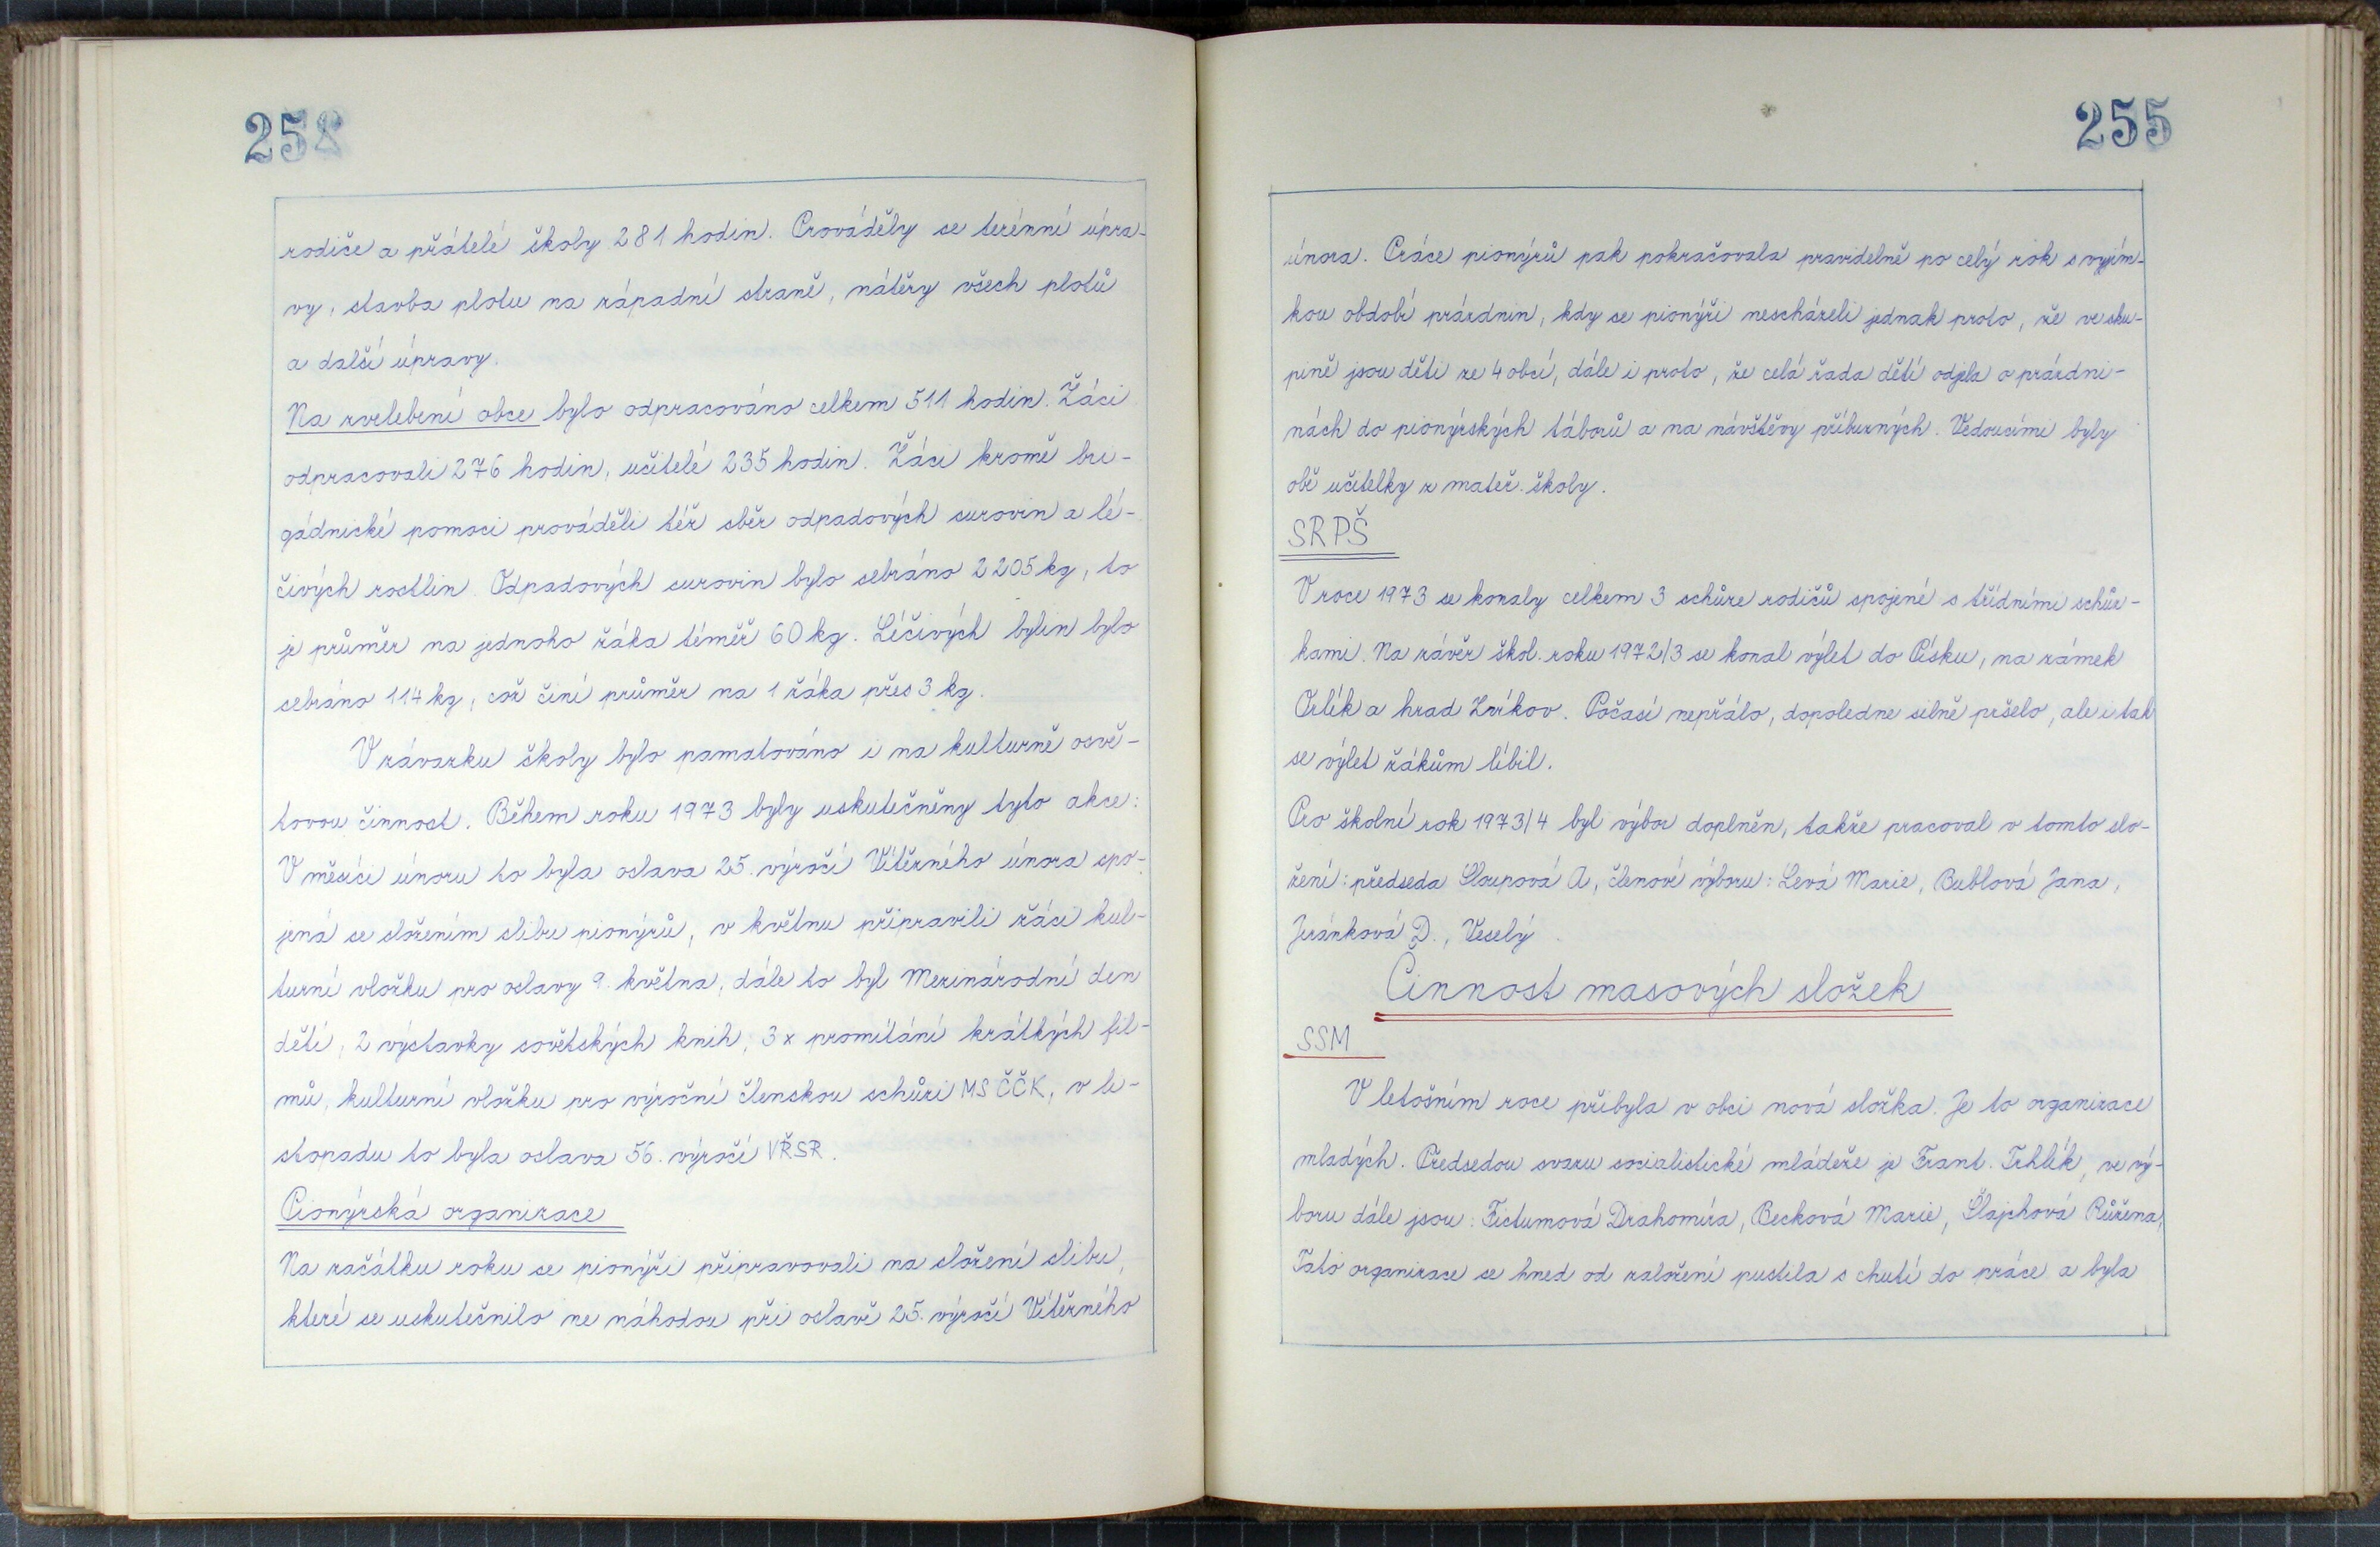 rodiče a přátelé školy 281 hodin. Prováděly se terénní úpra-
vy, stavba plotu na západní straně, nátěry všech plotů
a další úpravy.
Na zvelebení obce bylo odpracováno celkem 511 hodin. Žáci
odpracovali 276 hodin, učitelé 235 hodin. Žáci kromě bri-
gádnické pomoci prováděli též sběr odpadových surovin a lé-
čivých rostlin. Odpadových surovin bylo sebráno 2205 kg, to
je průměr na jednoho žáka téměř 60 kg. Léčivých bylin bylo
sebráno 114 kg, což činí průměr na 1 žáka přes 3 kg.
V závazku školy bylo pamatováno i na kulturně osvě-
tovou činnost. Během roku 1973 byly uskutečněny tyto akce:
V měsíci únoru to byla oslava 25. výročí Vítězného února spo-
jená se složením slibu pionýrů, v květnu připravili žáci kul-
turní vložku pro oslavy 9. května, dále to byl Mezinárodní den
dětí, 2 výstavky sovětských knih, 3x promítání krátkých fil-
mů, kulturní vložku pro výroční členskou schůzi MS ČČK, v li-
stopadu to byla oslava 56. výročí VŘSR.
Pionýrská organizace
Na začátku roku se pionýři připravovali na složení slibu,
které se uskutečnilo ne náhodou při oslavě 25. výročí Vítězného
255
února. Práce pionýrů pak pokračovala pravidelně po celý rok s vyjím-
kou období prázdnin, kdy se pionýři nescházeli jednak proto, že ve sku-
pině jsou děti ze 4 obcí, dále i proto, že celá řada dětí odjela o prázdni-
nách do pionýrských táborů a na návštěvy příbuzných. Vedoucími byly
obě učitelky z mateř. školy.
SRPŠ
V roce 1973 se konaly celkem 3 schůze rodičů spojené s třídními schůz-
kami. Na závěr škol. roku 1972/3 se konal výlet do Písku, na zámek
Orlík a hrad Zvíkov. Počasí nepřálo, dopoledne silně pršelo, ale i tak
se výlet žákům líbil.
Pro školní rok 1973/4 byl výbor doplněn, takže pracoval v tomto slo-
žení: předseda Sloupová A, členové výboru: Levá Marie, Bublová Jana,
Jeránková D., Veselý.
Činnost masových složek
SSM
V letošním roce přibyla v obci nová složka. Je to organizace
mladých. Předsedou svazu socialistické mládeže je Frant. Trhlík, ve vý-
boru dále jsou: Fictumová Drahomíra, Becková Marie, Šlajchová Růžena,
Tato organizace se hned od založení pustila s chutí do práce a byla